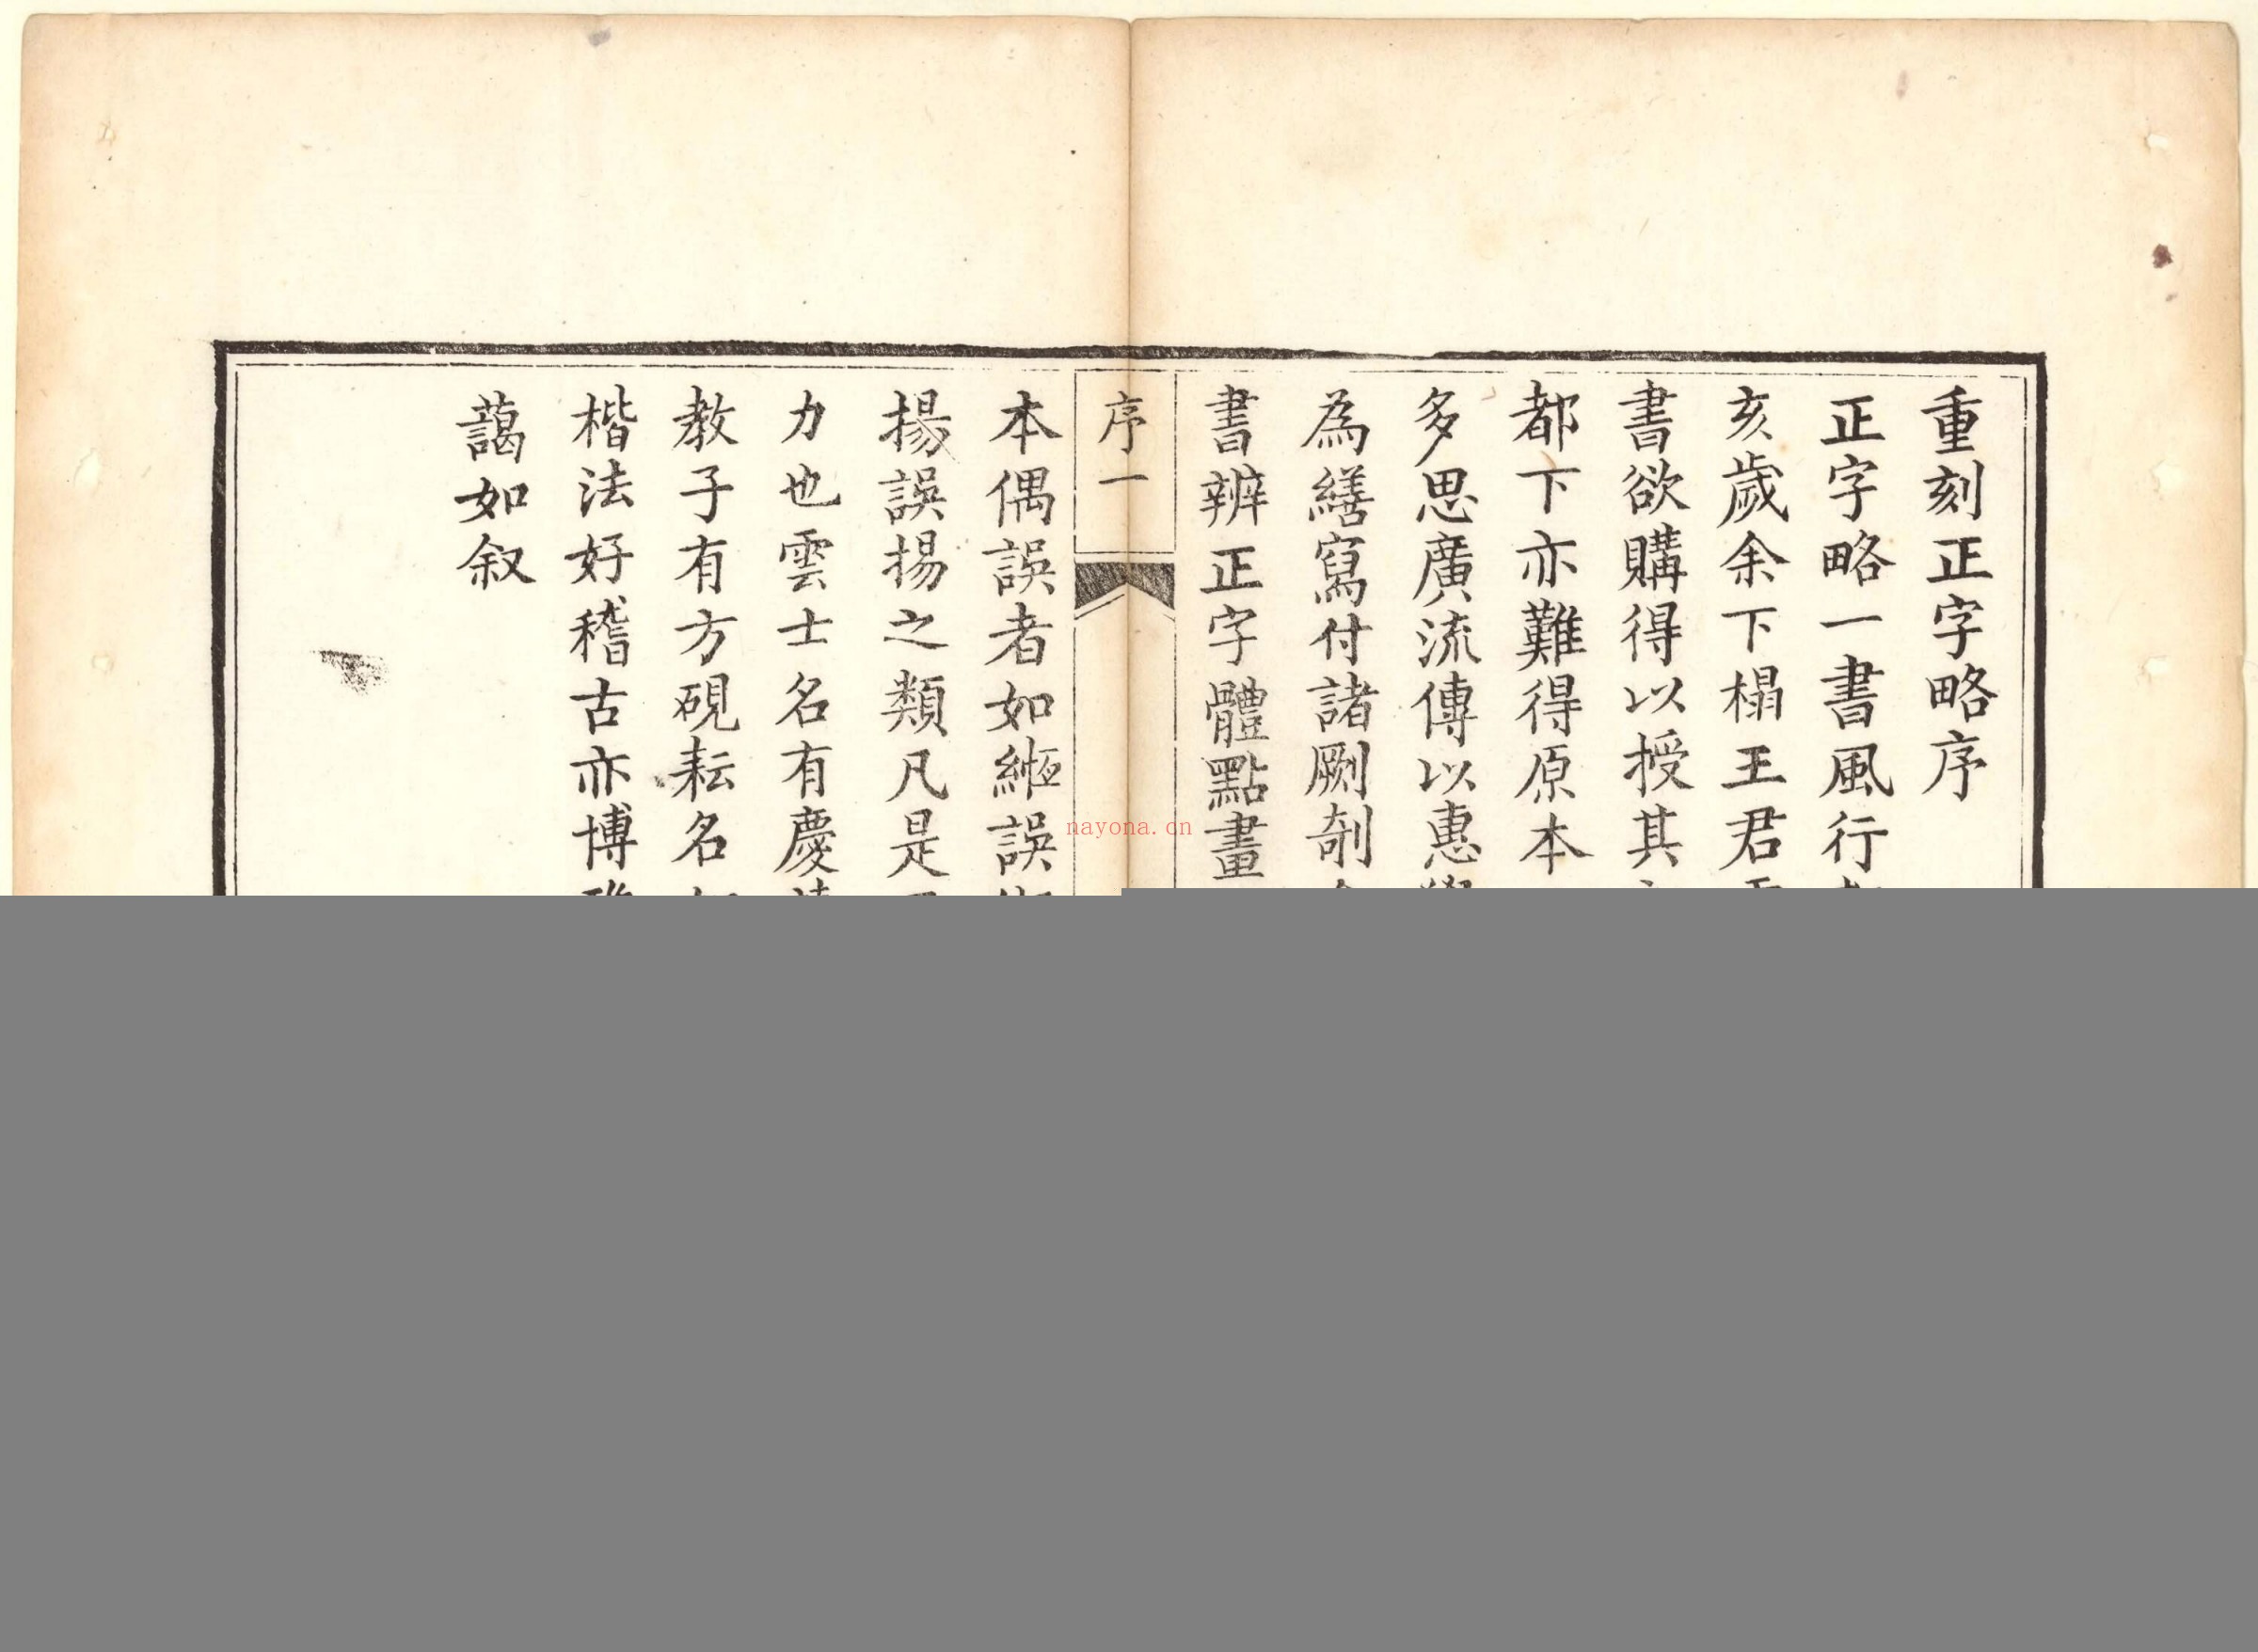 重刻正字略序
正字略一書風行
亥歲余下榻王君
書欲購得以授其
都下亦難得原本
多思廣流傳以惠
為繕寫付諸劂剞
書辨正字體點畫
序一
本偶誤者如緪誤
揚誤揚之類凡是
力也雲士名有慶
教子有方硯耘名
楷法好稽古亦博
藹如叙
nayona.cn